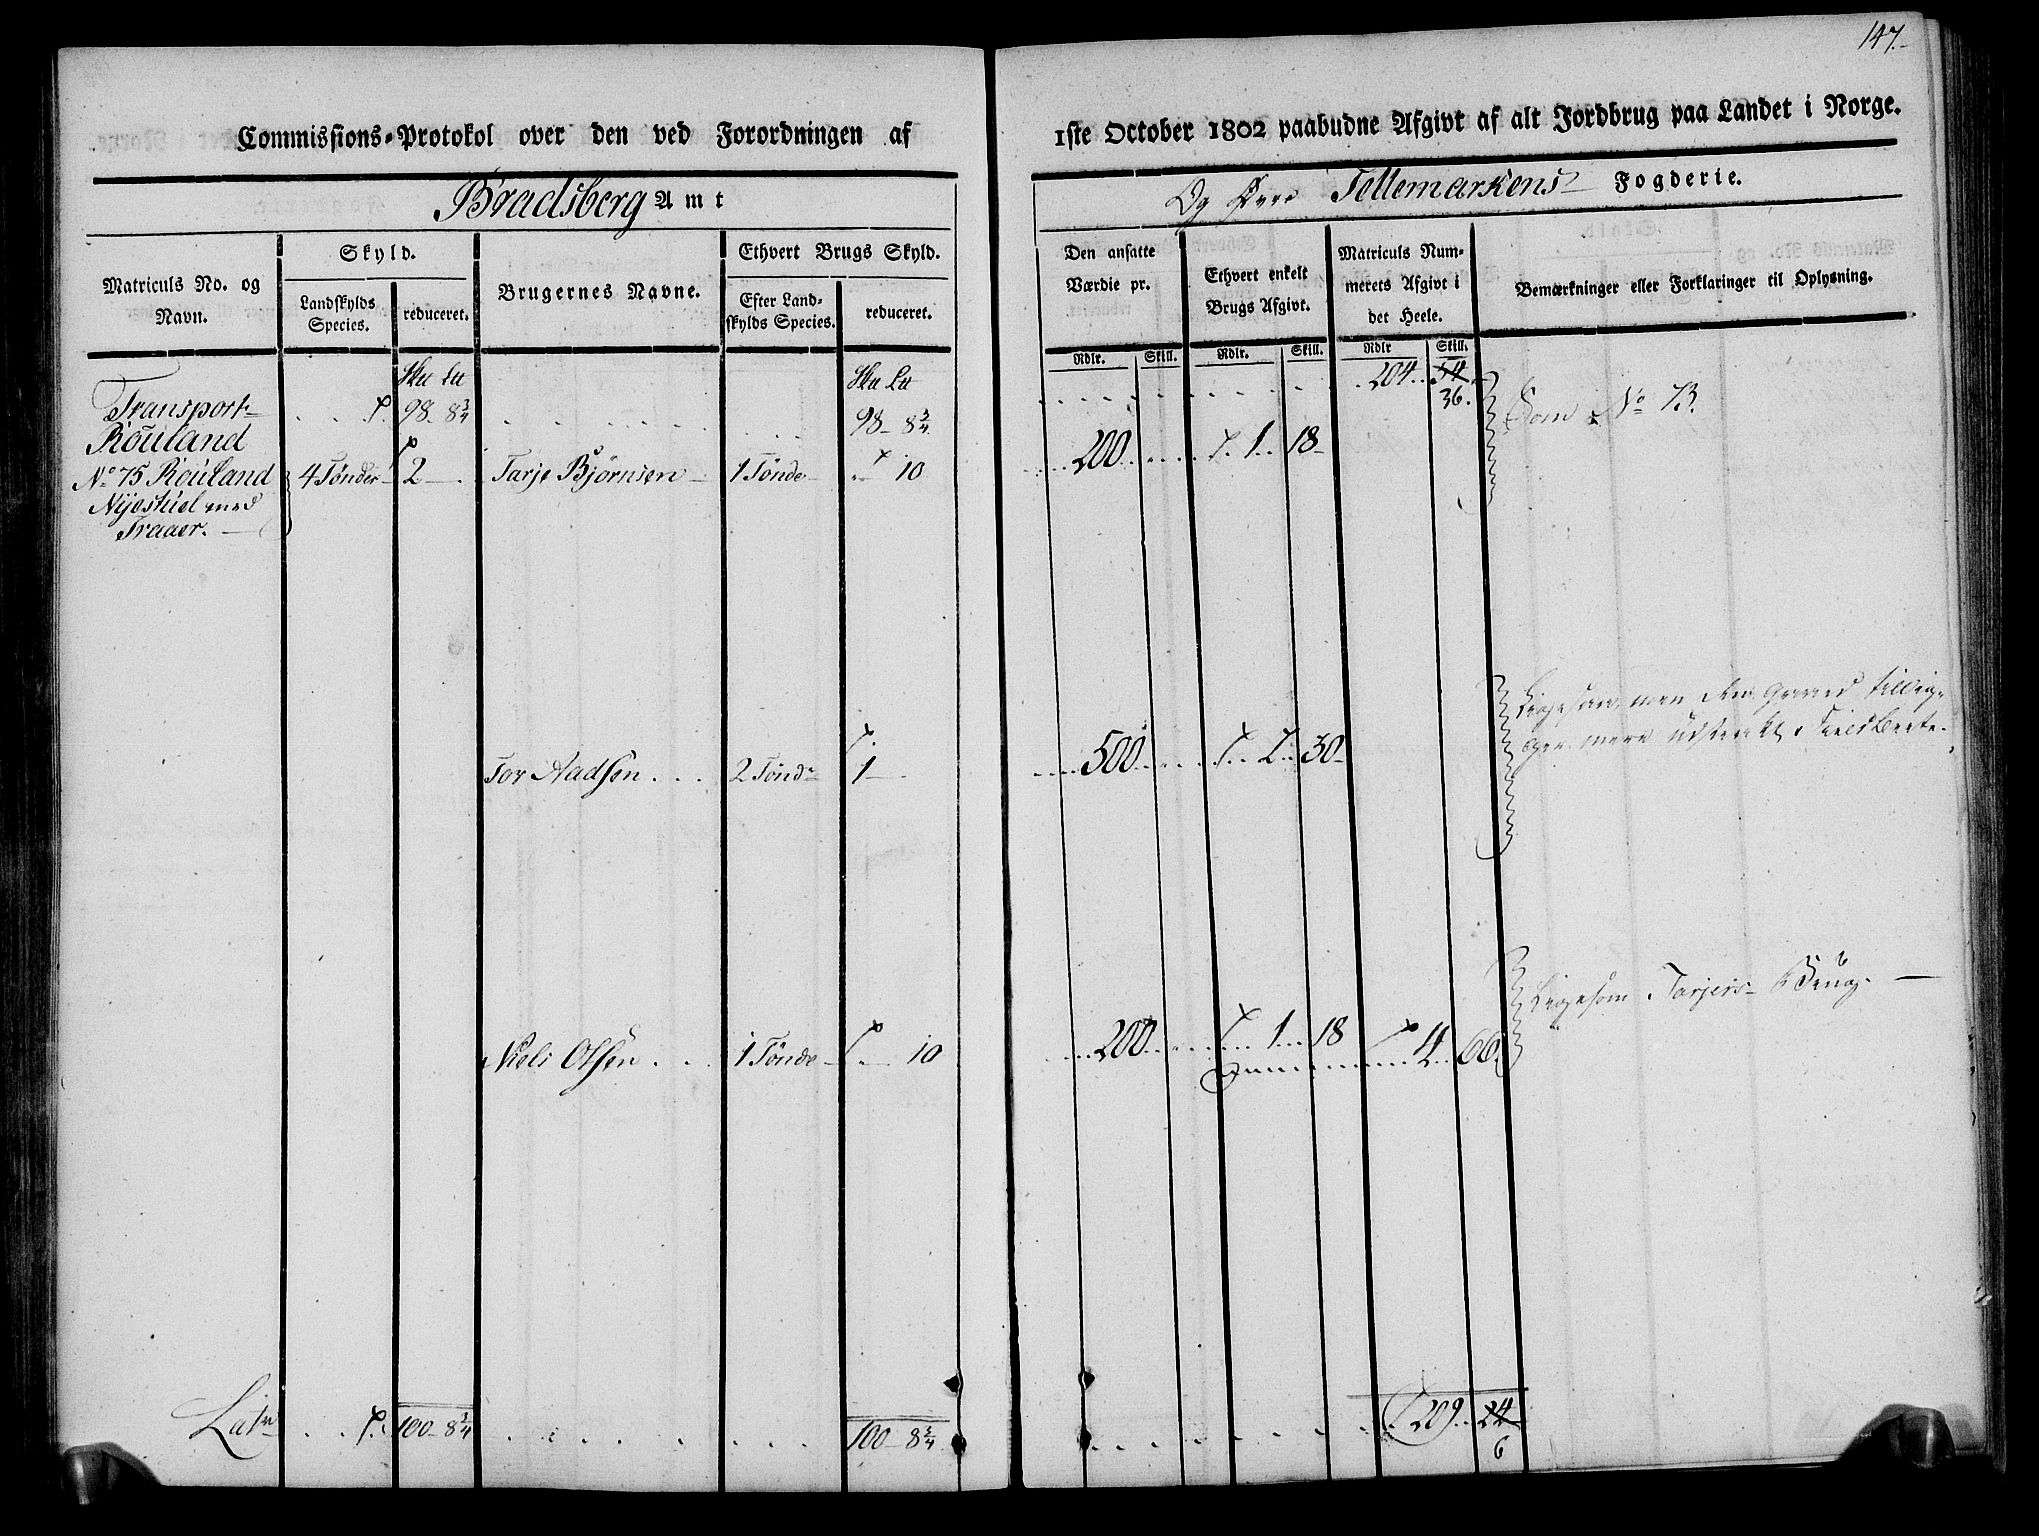 147.-
Commissions-Protokol over den ved Forordningen af
1ste October 1802 paabudne Afgivt af alt Jordbrug paa Landet i Norge.
Bradsberg Amt
Og Øvre Tellemarkens Fogderie.
Matriculs No. og Navn.
Skyld.
Landskylds Species.
reduceret.
Brugernes Navne.
Ethvert Brugs Skyld.
Efter Landskylds Species.
reduceret.
Den ansatte Værdie pr.
Ethvert enkelt Brugs Afgivt.
Matriculs Nummerets Afgivt i det Heele.
Bemærkninger eller Forklaringer til Oplysning.
Rdlr. Skill. Rdlr. Skill. Rdlr Skill.
Transport 98 8¾ 98 8¾ 204 54
36.
Rouland
No 75 Rouland 4 Tønder 2 Tarje Bjørnsen 1 Tønde 10 200 1 18 Som No 73.
Nyestuel med
Traaer.
Ligesom, men
mere udstrakt
Tor Aadsen 2 Tønd 1 500 2 30
Ligesom Tarjers Brug.
Niels Olsen 1 Tønde 10 200 1 18 4 66
Lat 100 8¾ 100 8¾ 209 24
6